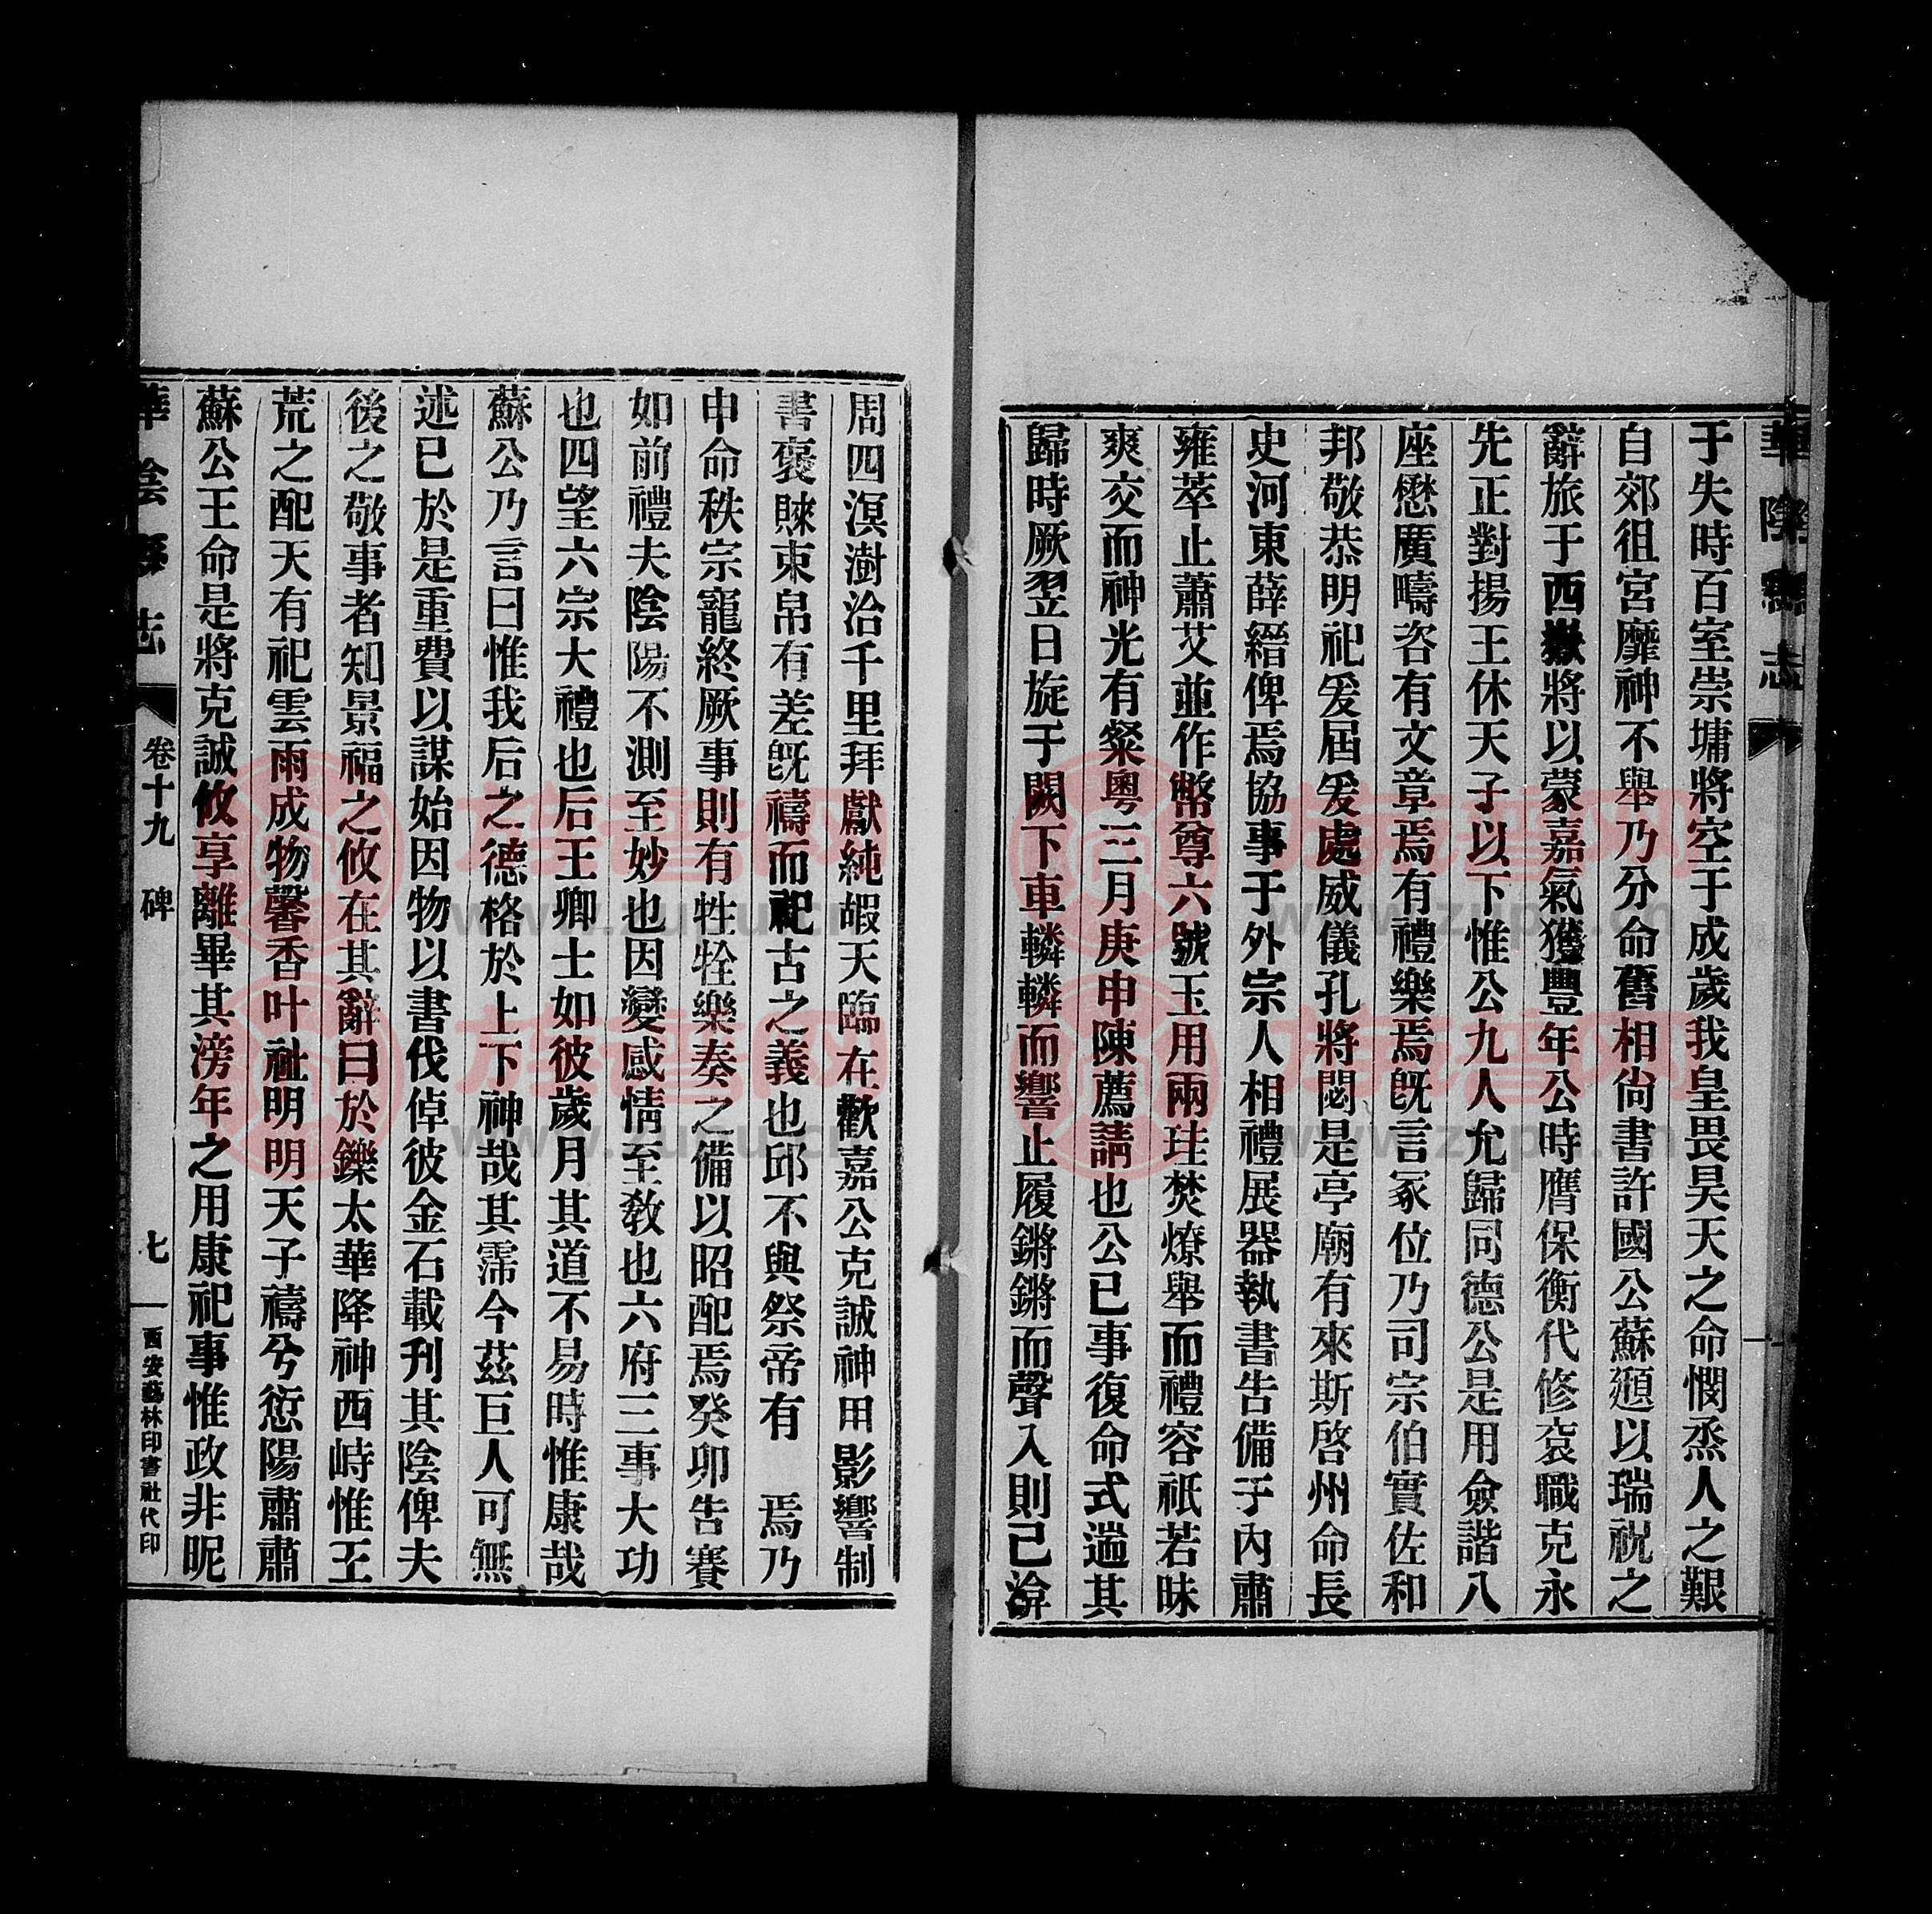 華陰縣志
于失時百室崇墉將空于成歲我皇畏昊天之命憫烝人之艱
自郊徂宮靡神不舉乃分命舊相尙書許國公蘇頲以瑞祝之
辭旅于西嶽將以蒙嘉氣獲豐年公時膺保衡代修袞職克永
先正對揚王休天子以下惟公九人允歸同德公是用僉諧八
座懋廣疇咨有文章焉有禮樂焉旣言冢位乃司宗伯實佐和
邦敬恭明祀爰屆爰處威儀孔將閟是亭廟有來斯啓州命長
史河東薛縉俾焉協事于外宗人相禮展器執書告備于內肅
雍萃止蕭艾並作幣尊六號玉用兩珪焚燎舉而禮容祇若昧
爽交而神光有粲粵三月庚申陳薦請也公已事復命式遄其
歸時厥翌日旋于闕下車轔轔而響止履鏘鏘而聲入則已渰
周四溟澍洽千里拜獻純嘏天臨在歡嘉公克誠神用影響制
書褒賚束帛有差旣禱而祀古之義也邱不與祭帝有 焉乃
申命秩宗寵終厥事則有牲牷樂奏之備以昭配焉癸卯告賽
如前禮夫陰陽不測至妙也因變感情至敎也六府三事大功
也四望六宗大禮也后王卿士如彼歲月其道不易時惟康哉
蘇公乃言曰惟我后之德格於上下神哉其霈今茲巨人可無
述已於是重費以謀始因物以書伐倬彼金石載刋其陰俾夫
後之敬事者知景福之攸在其辭曰於鑠太華降神西峙惟王
荒之配天有祀雲雨成物馨香叶祉明明天子禱兮愆陽肅肅
蘇公王命是將克誠攸享離畢其滂年之用康祀事惟政非昵
華陰縣志
卷十九 碑
七
西安藝林印書社代印